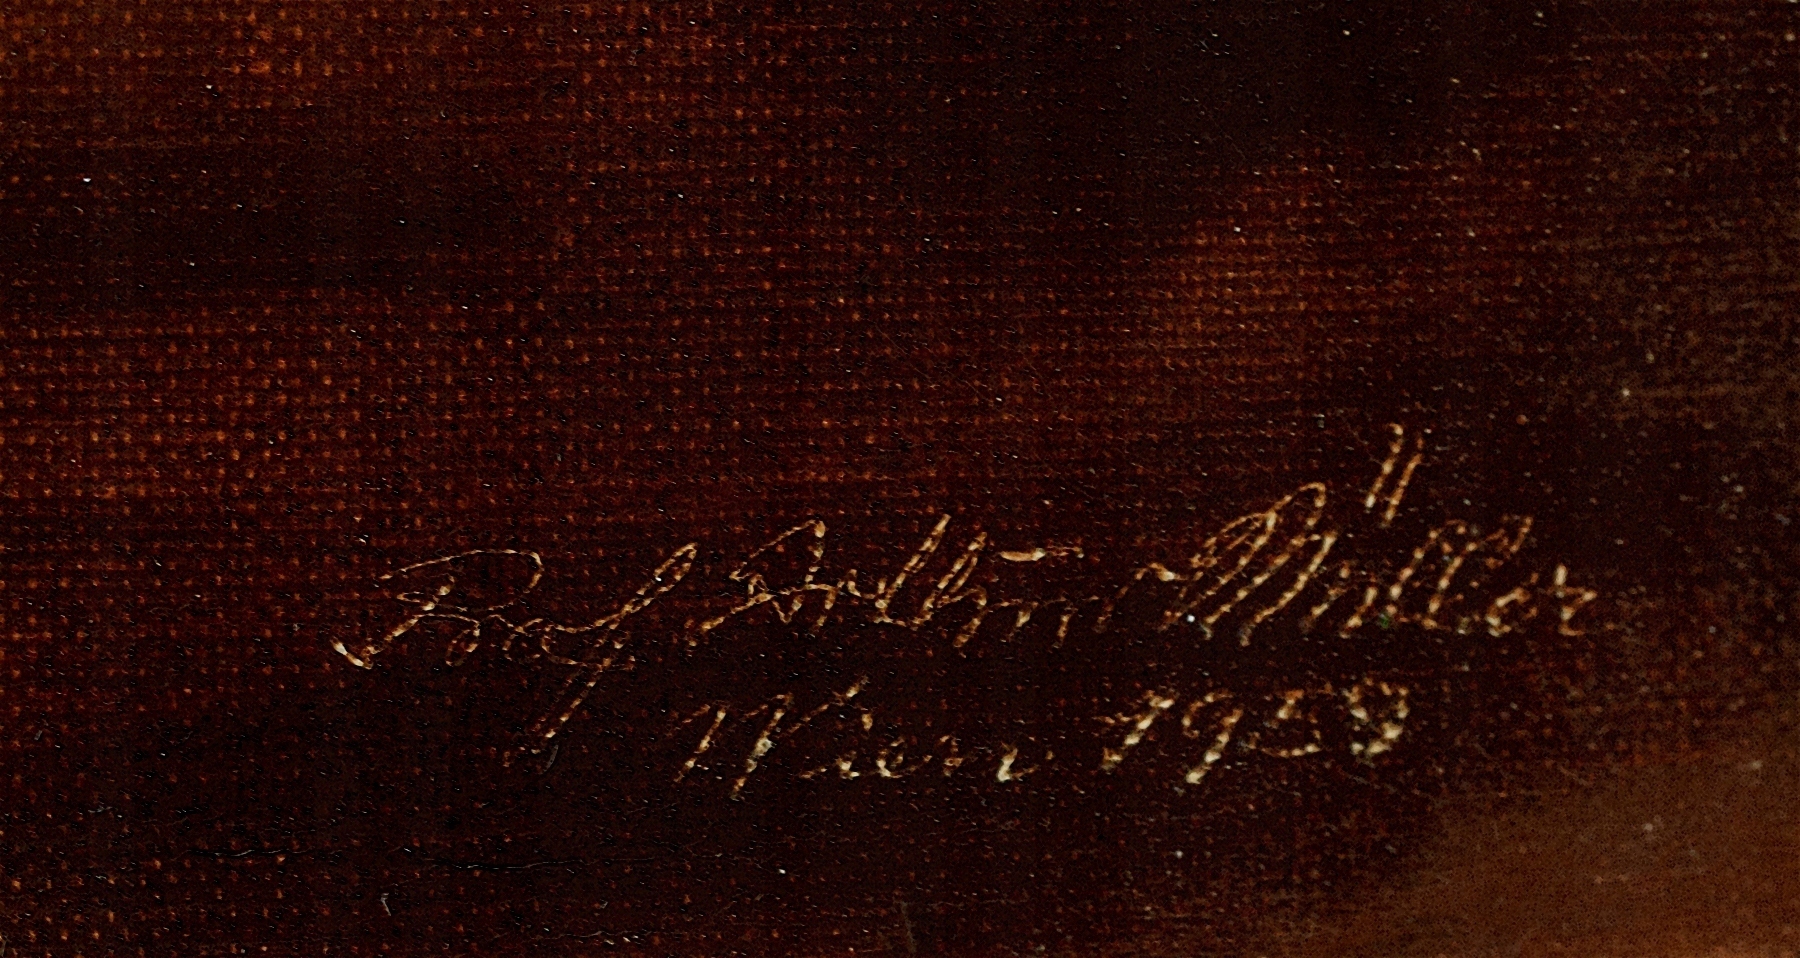 Prof Arthur Müller
Wien